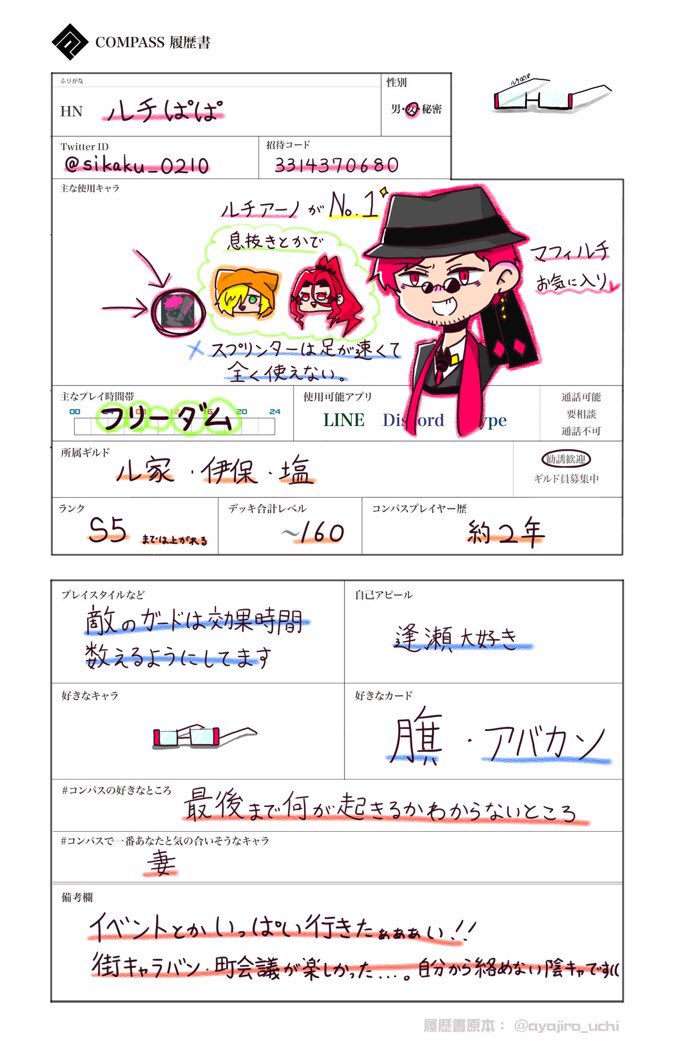 COMPASS 履歴書
ふりがな
HN ルチぱぱ
性別
男・女・秘密
Twitter ID
@sikaku_0210
招待コード
3314370680
主な使用キャラ
ルチアーノが No.1
息抜きとかで
マフィルチ
お気に入り
スプリンターは足が速くて
全く使えない。
主なプレイ時間帯
00 20 24
フリーダム
使用可能アプリ
LINE
通話可能
要相談
通話不可
所属ギルド
ル家・伊保・塩
勧誘歓迎
ギルド員募集中
ランク
S5 までは上がれる
デッキ合計レベル
~160
コンパスプレイヤー歴
約2年
プレイスタイルなど
敵のガードは効果時間
数えるようにしてます
自己アピール
逢瀬大好き
好きなキャラ
好きなカード
・アバカン
#コンパスの好きなところ
最後まで何が起きるかわからないところ
#コンパスで一番あなたと気の合いそうなキャラ
妻
備考欄
イベントとかいっぱい行きたぁぁぁい!!
街キャラバン・町会議が楽しかった...。自分から絡めない陰キャです((
履歴書原本: @ayajiro_uchi